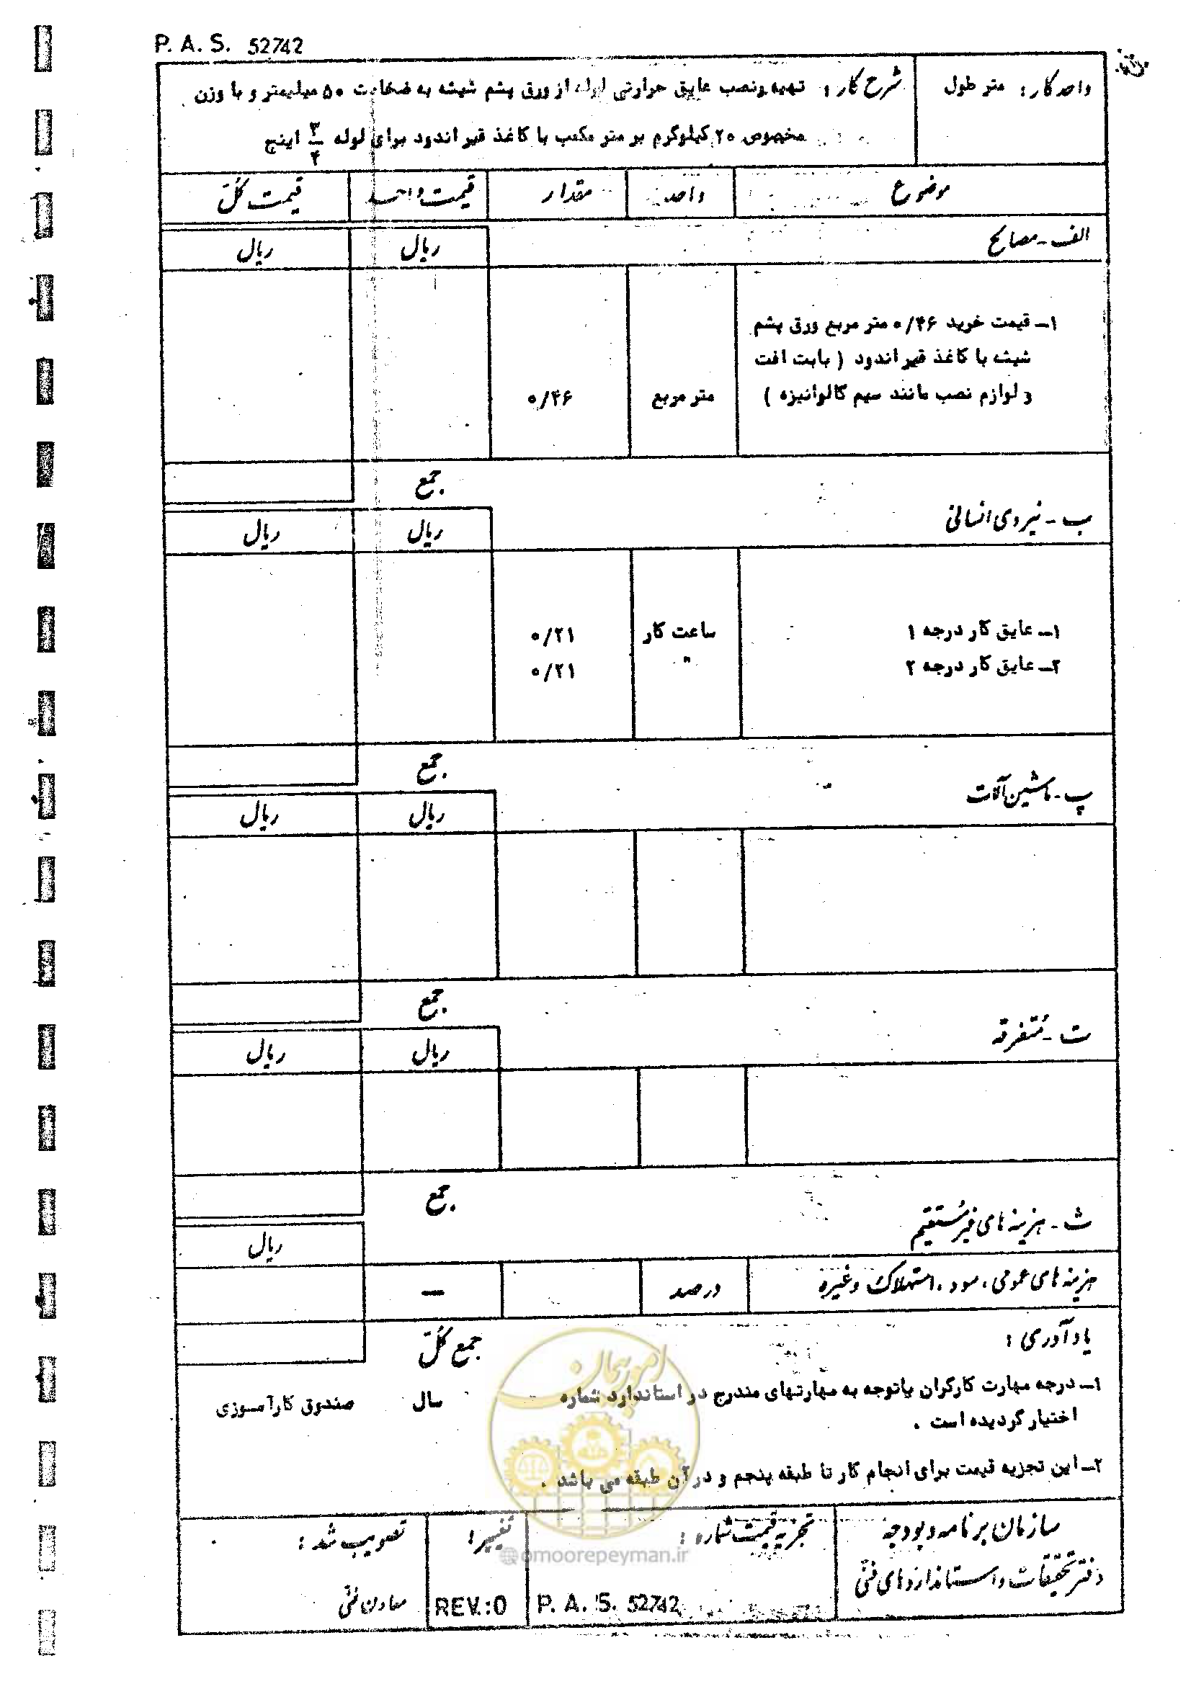 P. A. S. 52742
واحد کار : متر طول
شرح کار : تهیه ونصب عایق حرارتی لوله از ورق پشم شیشه به ضخامت ۵۰ میلیمتر و با وزن
مخصوص ۲۰ کیلوگرم بر متر مکعب با کاغذ قیر اندود برای لوله ۳/۴ اینچ
موضوع واحد مقدار قیمت واحد قیمت کل
الف - مصالح
ریال ریال
۱- قیمت خرید ۰/۴۶ متر مربع ورق پشم
شیشه با کاغذ قیر اندود ( بابت افت
و لوازم نصب مانند سیم گالوانیزه ) متر مربع ۰/۴۶
جمع
ب - نیروی انسانی
ریال ریال
۱- عایق کار درجه ۱ ساعت کار ۰/۲۱
۲- عایق کار درجه ۲ " ۰/۲۱
جمع
پ - ماشین آلات
ریال ریال
جمع
ت - متفرقه
ریال ریال
جمع
ث - هزینه های غیر مستقیم
ریال
هزینه های عمومی ، سود ، استهلاک و غیره درصد —
یادآوری :
جمع کل
۱- درجه مهارت کارگران باتوجه به مهارتهای مندرج در استاندارد شماره سال صندوق کارآموزی
اختیار گردیده است .
۲- این تجزیه قیمت برای انجام کار تا طبقه پنجم و در آن طبقه می باشد .
امور پیمان
@omoorepeyman.ir
سازمان برنامه و بودجه
دفتر تحقیقات و استانداردهای فنی
تجزیه قیمت شماره :
P. A. S. 52742
تغییر :
REV.:0
تصویب شد :
معاون فنی